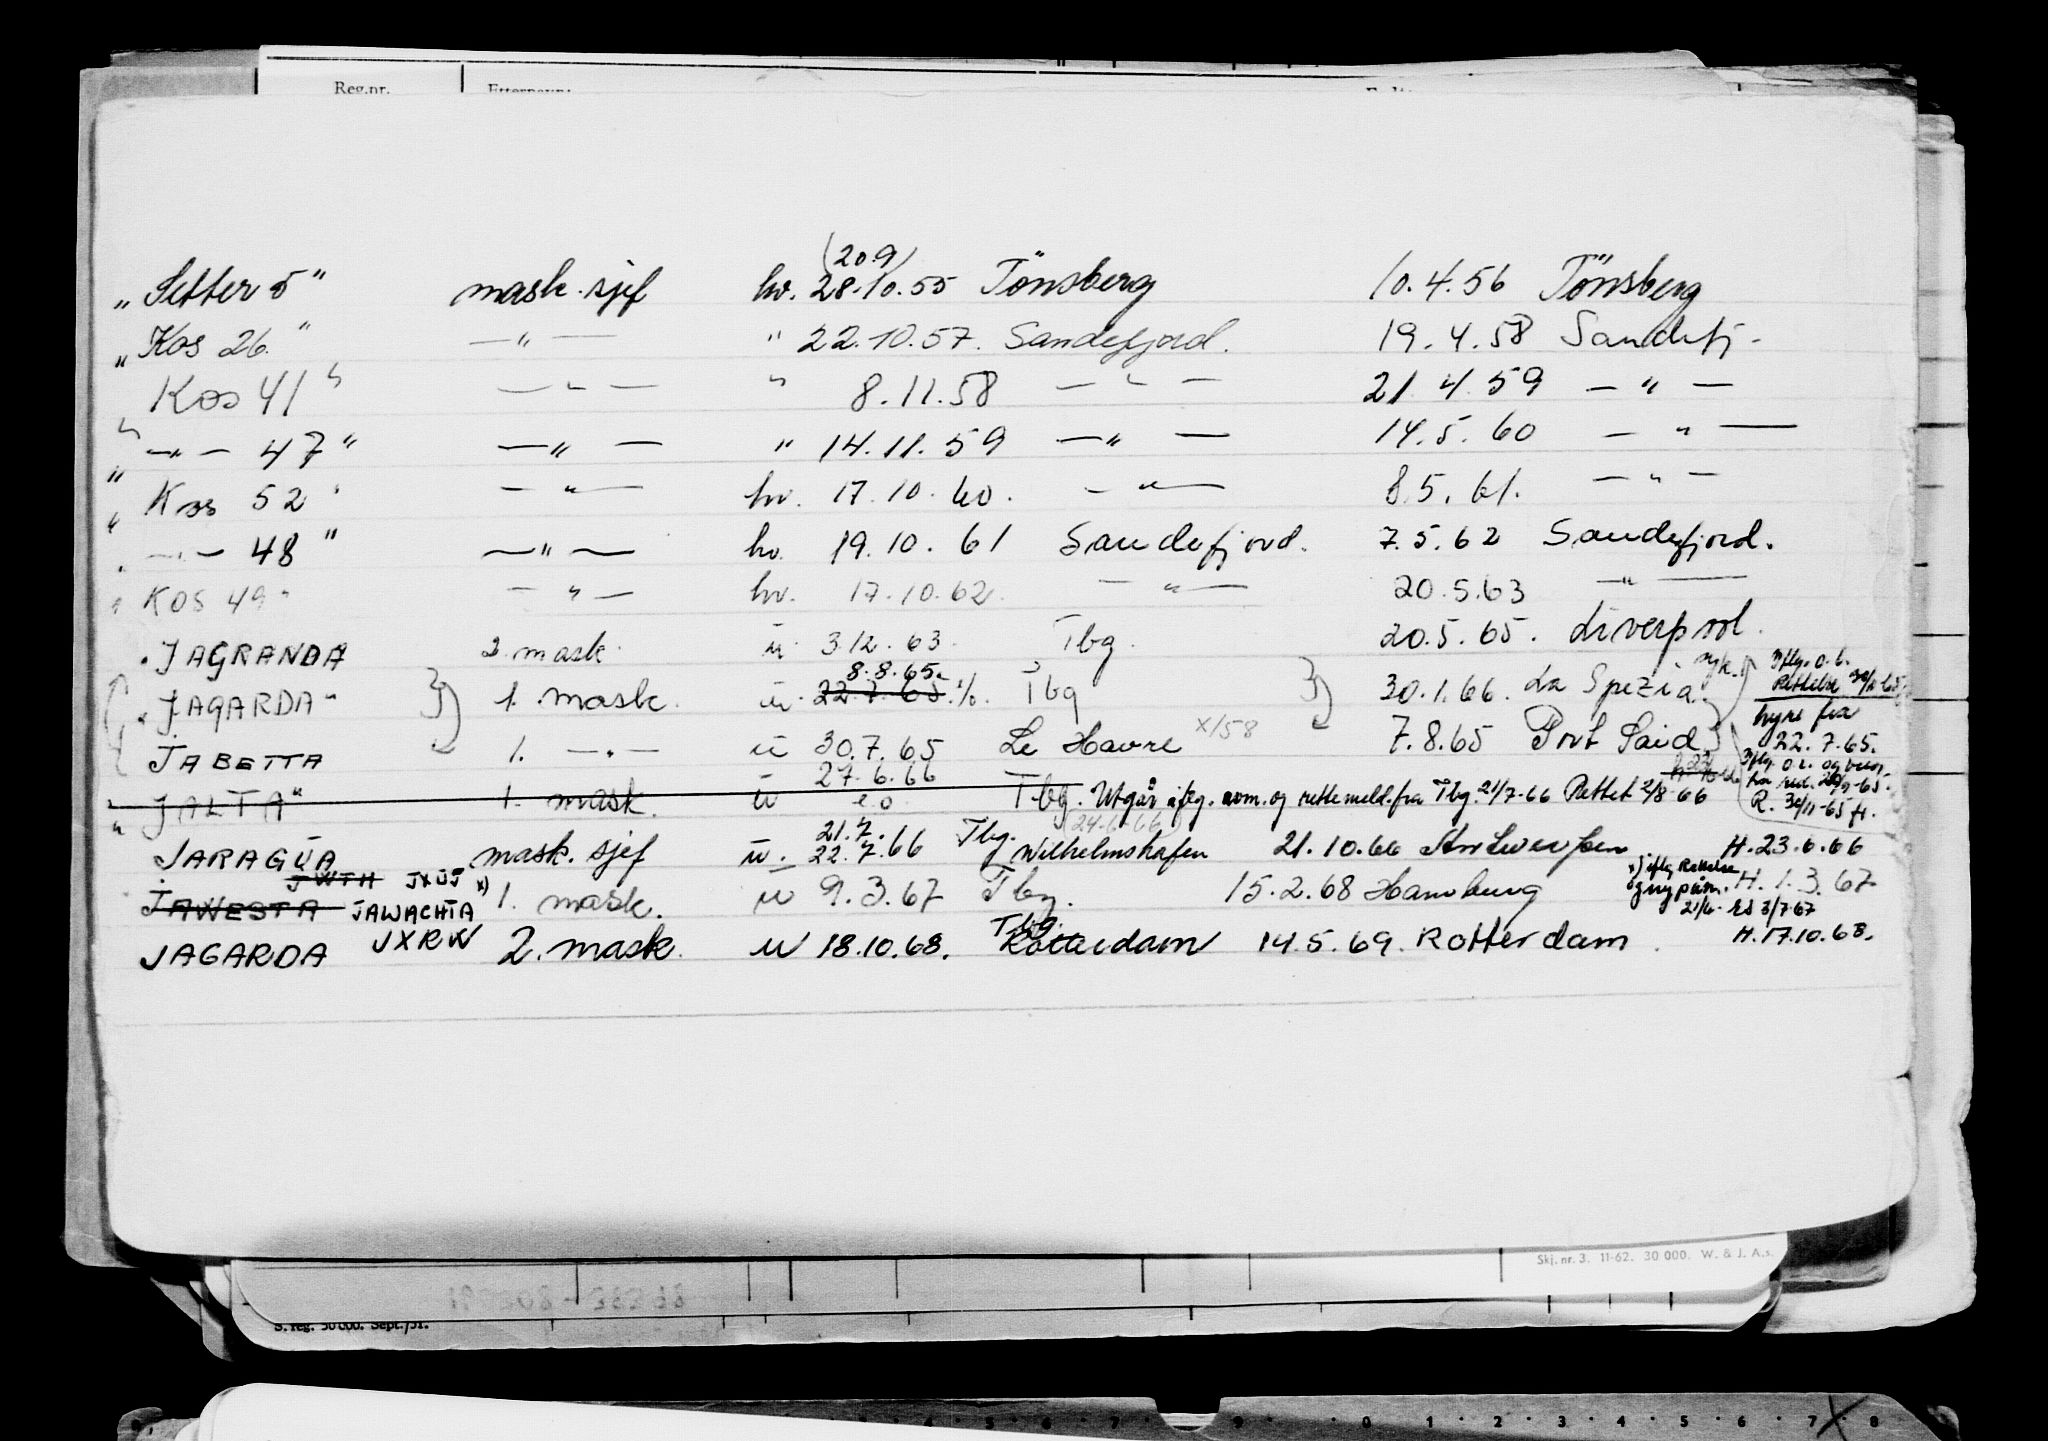 Reg.nr. Etternavn:
(20.9)
„ Setter 5 " mask. sjef hv. 28.10.55 Tönsberg 10.4.56 Tönsberg
„ Kos 26 " — „ — " 22.10.57. Sandefjord. 19.4.58 Sandefj.
Kos 41 " — " — " 8.11.58 — " — 21.4.59 — " —
„ — " — 47 " — " — " 14.11.59 — " — 14.5.60 — " —
" Kos 52 " — " — hv. 17.10.60. — " — 8.5.61. — " —
" — " — 48 " — " — hv. 19.10.61 Sandefjord. 7.5.62 Sandefjord.
" KOS 49 " — " — hv. 17.10.62. — " — 20.5.63 — " —
" JAGRANDA 2. mask. u. 3.12.63. Tbg. 20.5.65. Liverpool.
8.8.65.
" JAGARDA " 1. mask. u. 22.7.65. Tbg 30.1.66. La Spezia. syk.
JABETTA 1. — " — u 30.7.65 Le Havre x/58 7.8.65 Port Said
Iflg. o.b.
hyre fra
22.7.65.
R. 30/11-65
27.6.66
" JALTA " 1. mask. u Tbg. Utgår iflg. nom. og rettemeld. fra Tbg. 21/7-66 Rettet 2/8 66
(24-6-66)
21.7.
JARAGUA mask. sjef u. 22.7.66 Tbg. Wilhelmshafen 21.10.66 Antwerpen H. 23.6.66
JWTH JXUJ x)
JAWESTA JAWACHTA 1. mask. u 9.3.67 Tbg. 15.2.68 Hamburg H. 1.3.67
x) iflg Rettelse
21/6- 3/7 67
Tbg.
JAGARDA JXRW 2. mask. u 18.10.68. Rotterdam 14.5.69. Rotterdam. H. 17.10.68.
Skj. nr. 3. 11-62. 30 000. W. & J. A.s.
S. reg. 30 000. Sept./51.
4 5 6 7 9 0 1 2 3 4 5 6 7 8